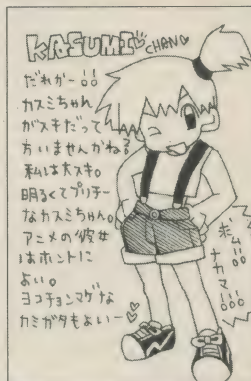 KASUMI♡CHAN♡
だれかー!!
カスミちゃん
がスキだって
方いませんかねぇ
私は大スキ。
明るくてプリチー
なカスミちゃん。
アニメの彼女
はホントに
よい。
ヨコチョンマゲな
カミガタもよいー
ボム!!
ナカマ!!!